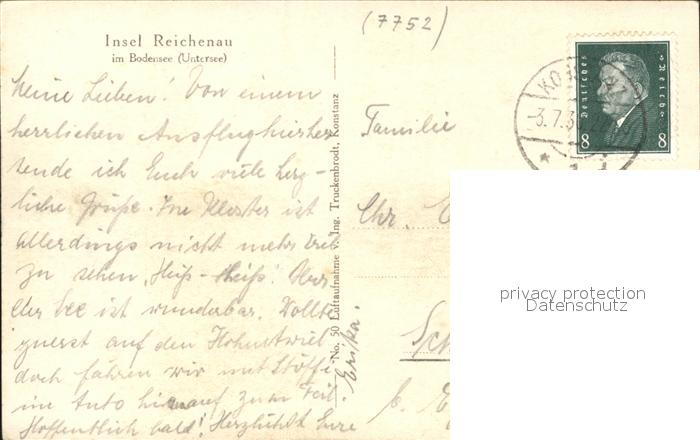 (7752)
Insel Reichenau
im Bodensee (Untersee)
Meine Lieben! Von einem
herrlichen Ausflug hierher
sende ich Euch viele herz-
liche Grüße. Im Kloster ist
allerdings nicht mehr viel
zu sehen,
der See ist wunderbar. Wollte
zuerst auf den Hohentwiel
doch fahren wir mit
im Auto hinauf zum Teil.
Hoffentlich bald! Herzlichst Eure
Erika.
No. 50 Luftaufnahme v. Ing. Truckenbrodt, Konstanz
Familie
Chr.
Deutsches Reich
8 8
KO
-3.7.3
privacy protection
Datenschutz